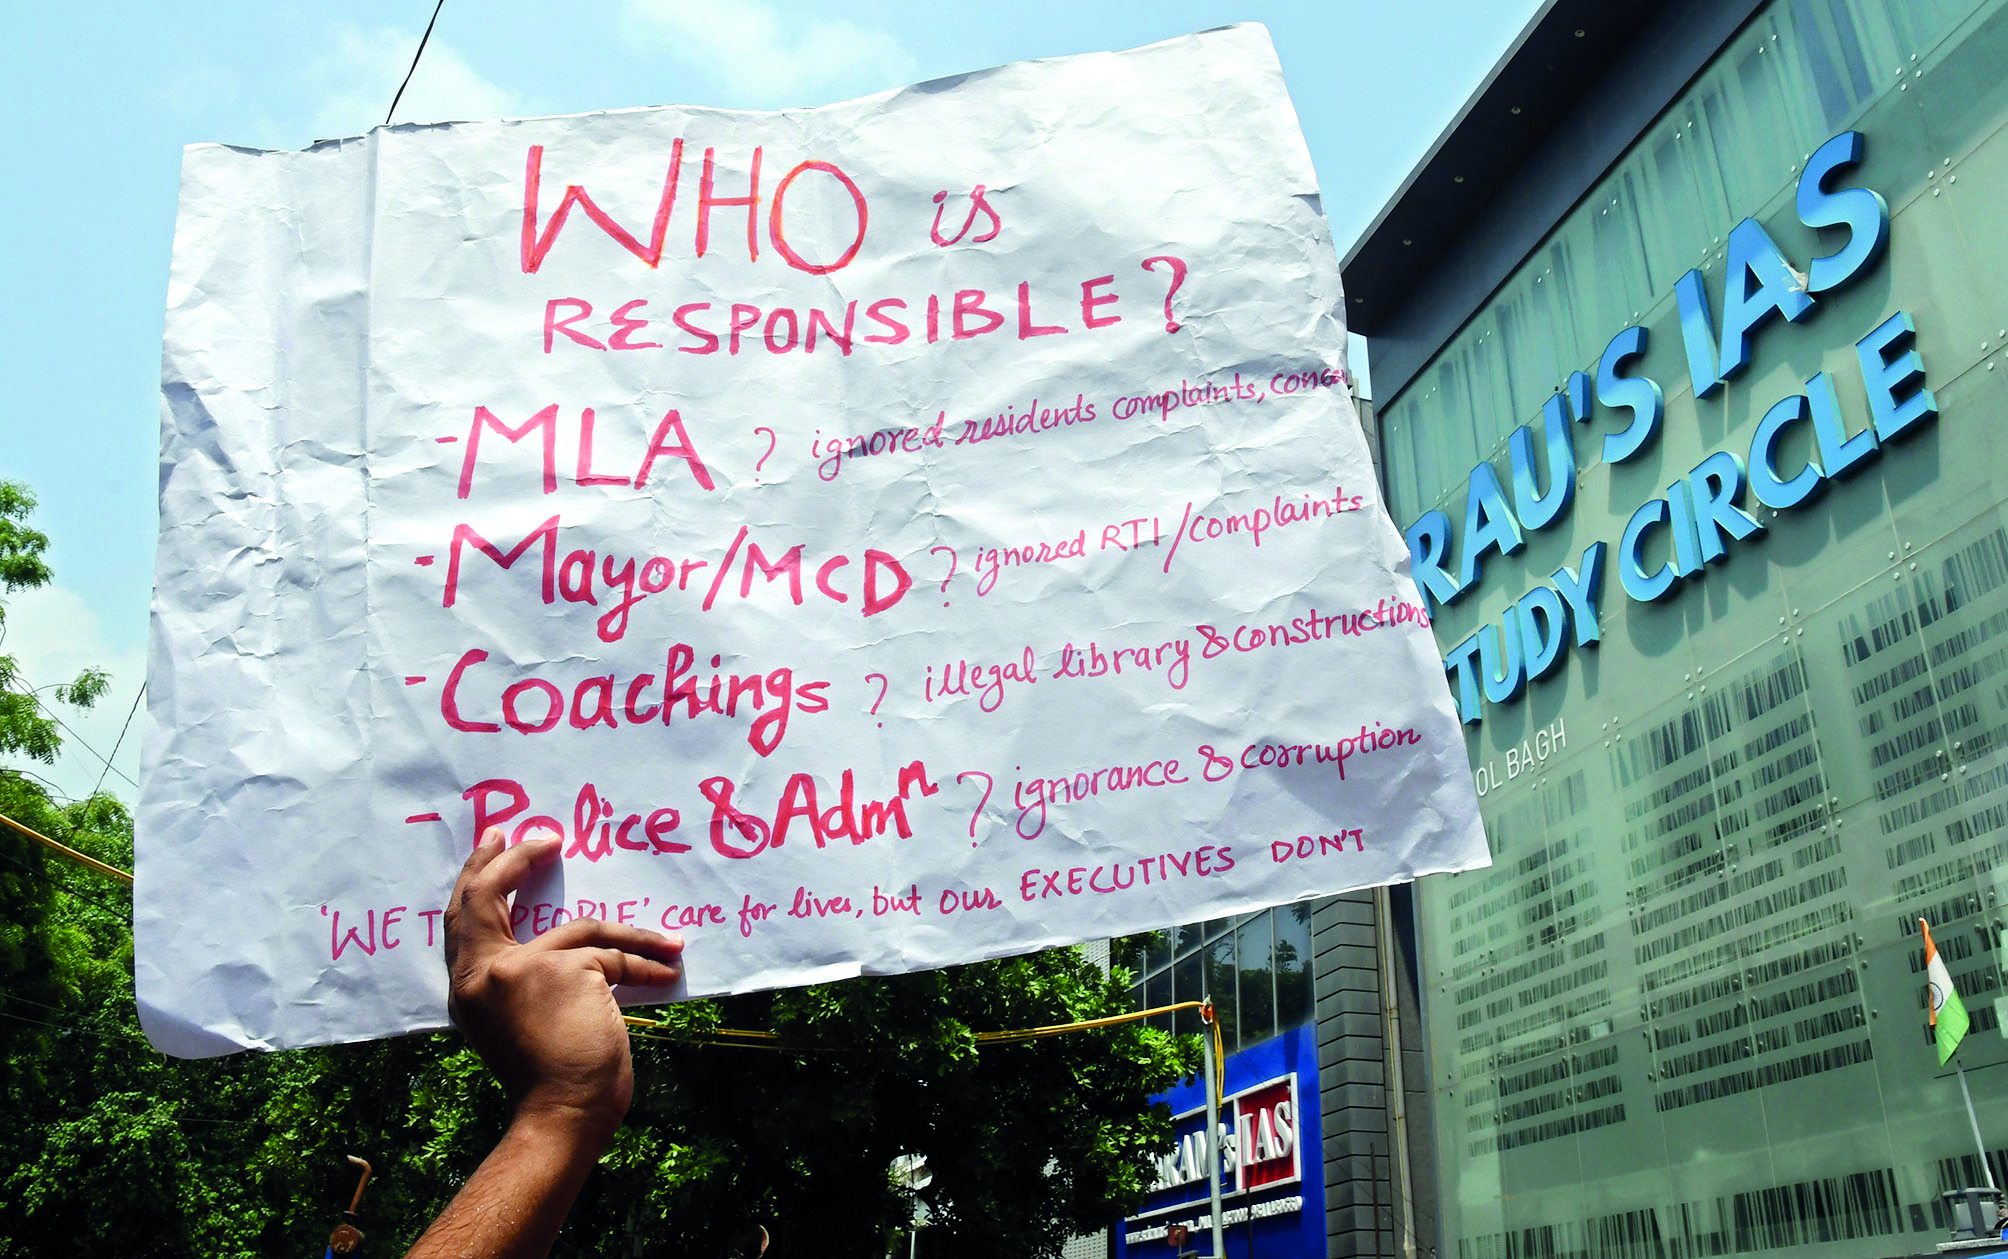 WHO is
RESPONSIBLE?
- MLA ? ignored residents complaints,
- Mayor/MCD ? ignored RTI/complaints
- Coachings ? illegal library & constructions
- Police & Admⁿ ? ignorance & corruption
'WE PEOPLE' care for lives, but our EXECUTIVES DON'T
RAU'S IAS
STUDY CIRCLE
OL BAGH
IAS